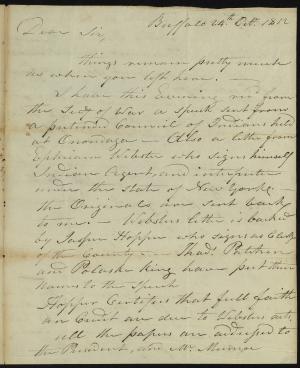 Buffalo 24th Oct. 1812
Dear Sir,
things remain pretty much
as when you left here, —
I have this Evening rec'd from
the Sec'y of War a speech sent from
a pretended Council of Indians held
at Onondaga — Also a letter from
Ephraim Webster who signs himself
Indian Agent, and interpreter
under the State of New York —
the Originals are sent back
to me. — Websters letter is backed
by Jasper Hopper who signs as Clerk
of the County — Thad. Patchin
and Polaske King have put their
Names to the Speech
Hopper Certifies that full faith
an Credit are due to Websters acts,
all the papers are addressed to
the President, and Mr. Monroe